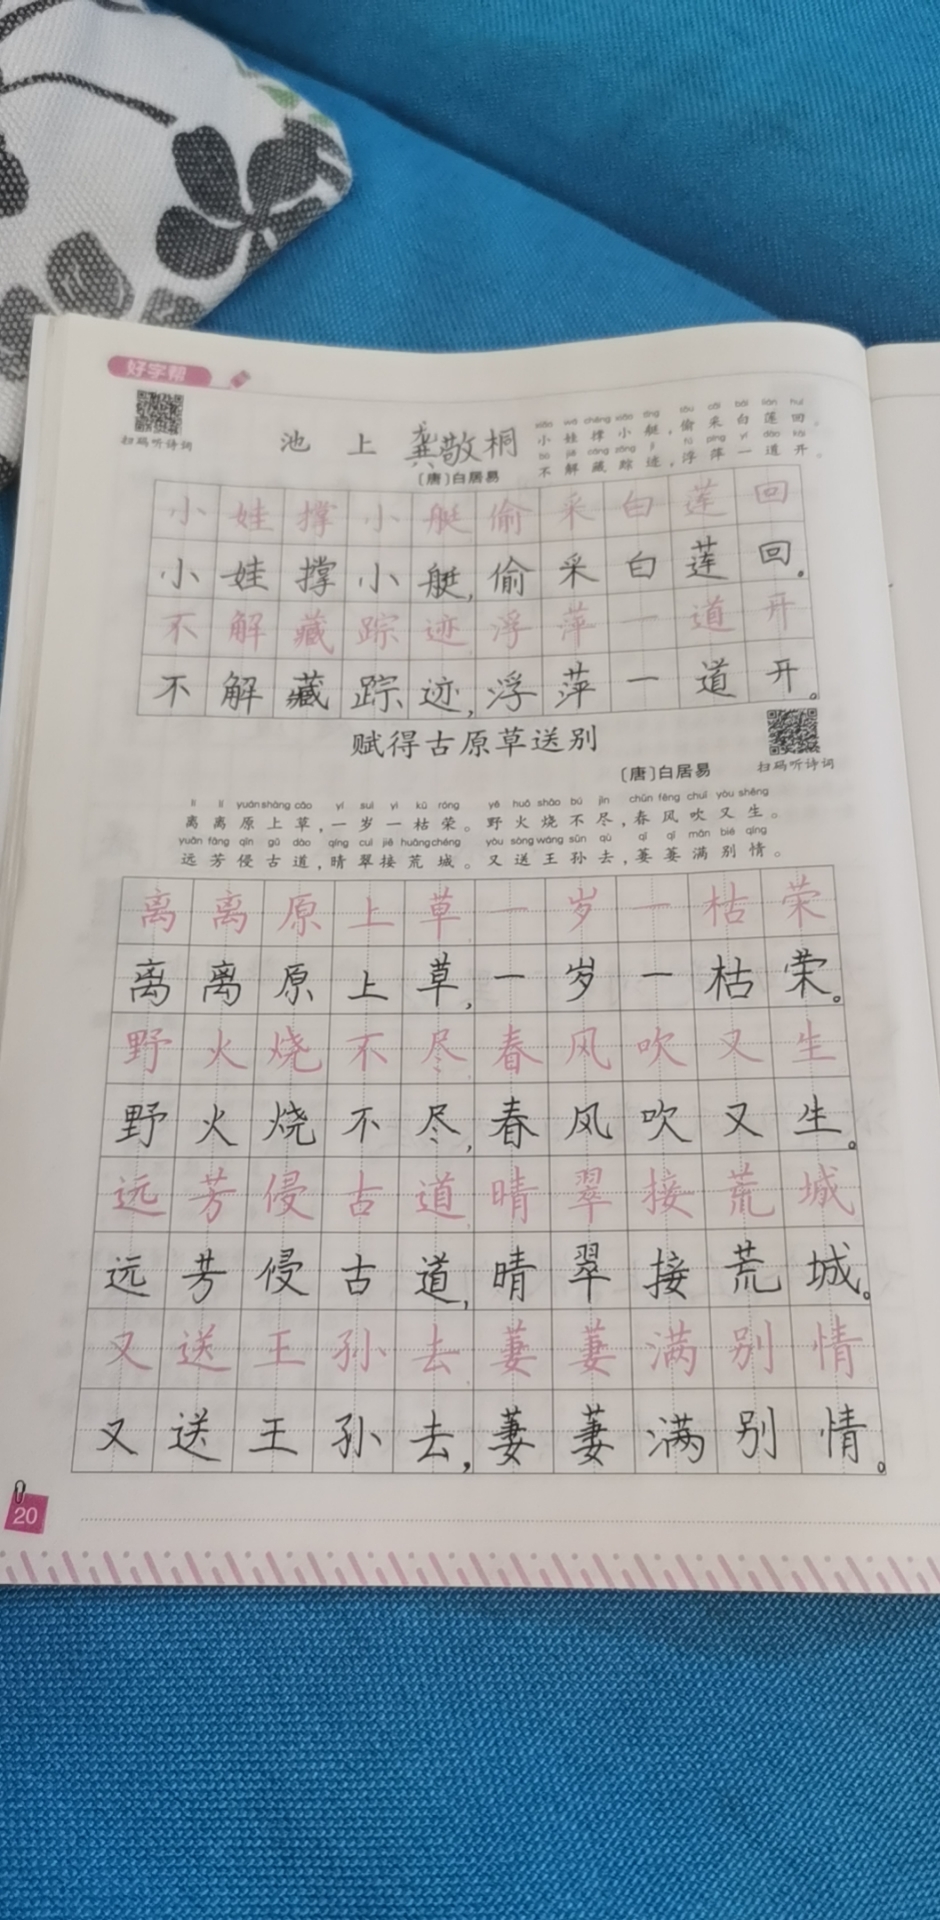 好字帮
扫码听诗词
池上 龚敬桐
〔唐〕白居易
xiǎo wá chēng xiǎo tǐng tōu cǎi bái lián huí
小娃撑小艇,偷采白莲回。
bù jiě cáng zōng jì fú píng yí dào kāi
不解藏踪迹,浮萍一道开。
小娃撑小艇偷采白莲回
小娃撑小艇,偷采白莲回。
不解藏踪迹浮萍一道开
不解藏踪迹,浮萍一道开。
赋得古原草送别
〔唐〕白居易
扫码听诗词
lí lí yuán shàng cǎo yí suì yì kū róng yě huǒ shāo bú jìn chūn fēng chuī yòu shēng
离离原上草,一岁一枯荣。野火烧不尽,春风吹又生。
yuǎn fāng qīn gǔ dào qíng cuì jiē huāng chéng yòu sòng wáng sūn qù qī qī mǎn bié qíng
远芳侵古道,晴翠接荒城。又送王孙去,萋萋满别情。
离离原上草一岁一枯荣
离离原上草,一岁一枯荣。
野火烧不尽春风吹又生
野火烧不尽,春风吹又生。
远芳侵古道晴翠接荒城
远芳侵古道,晴翠接荒城。
又送王孙去萋萋满别情
又送王孙去,萋萋满别情。
20